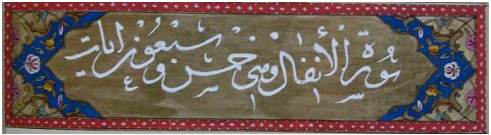 سورة الأنفال وهي خمس وسبعون آيات